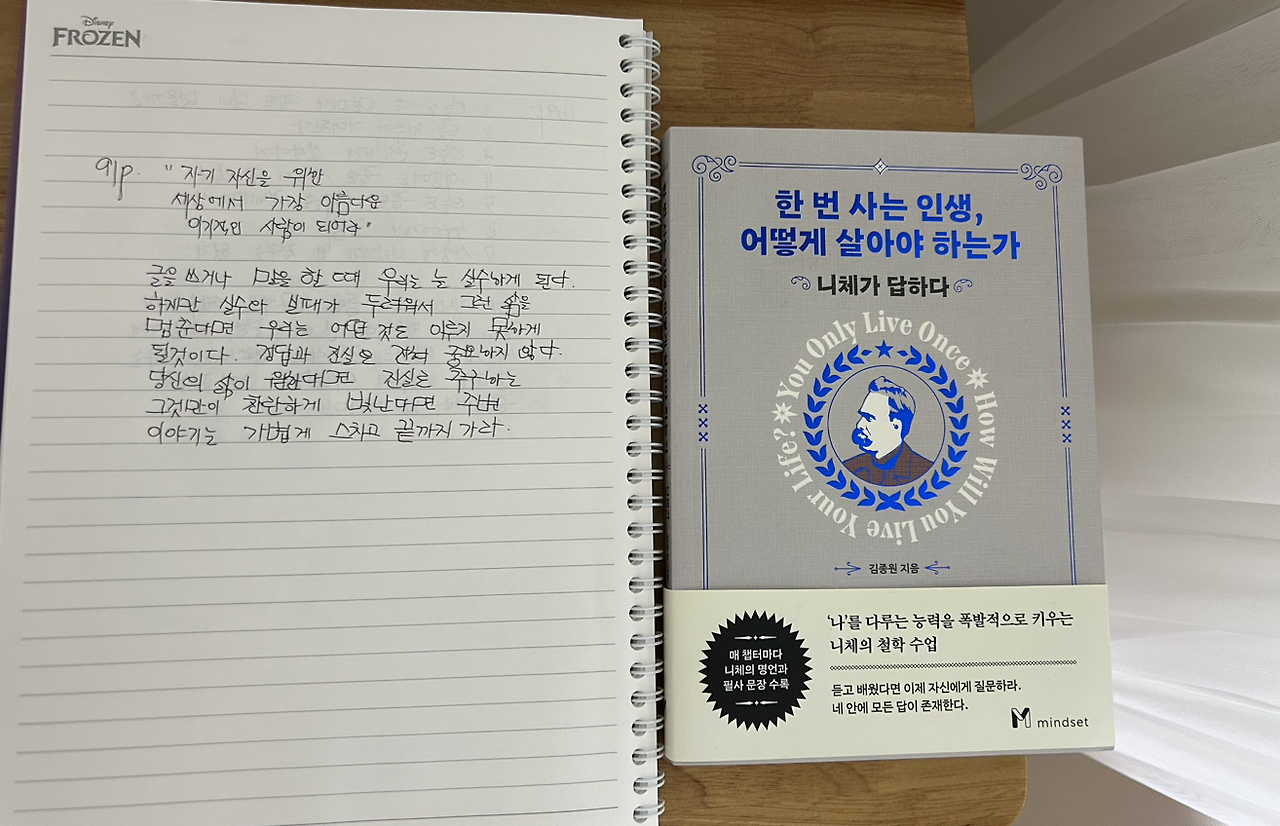 Disney
FROZEN
91p. "자기 자신을 위한
세상에서 가장 아름다운
이기적인 사람이 되어라"
글을 쓰거나 말을 할 때 우리는 늘 실수하게 된다.
하지만 실수와 반대가 두려워서 그런 삶을
멈춘다면 우리는 어떤 것도 이루지 못하게
될것이다. 정답과 진실은 전혀 중요하지 않다.
당신의 삶이 원한다면 진실로 추구하는
그것만이 찬란하게 빛난다면 주변
이야기는 가볍게 스치고 끝까지 가라.
한 번 사는 인생,
어떻게 살아야 하는가
니체가 답하다
You Only Live Once
How Will You Live Your Life?
김종원 지음
'나'를 다루는 능력을 폭발적으로 키우는
니체의 철학 수업
매 챕터마다
니체의 명언과
필사 문장 수록
듣고 배웠다면 이제 자신에게 질문하라.
네 안에 모든 답이 존재한다.
mindset